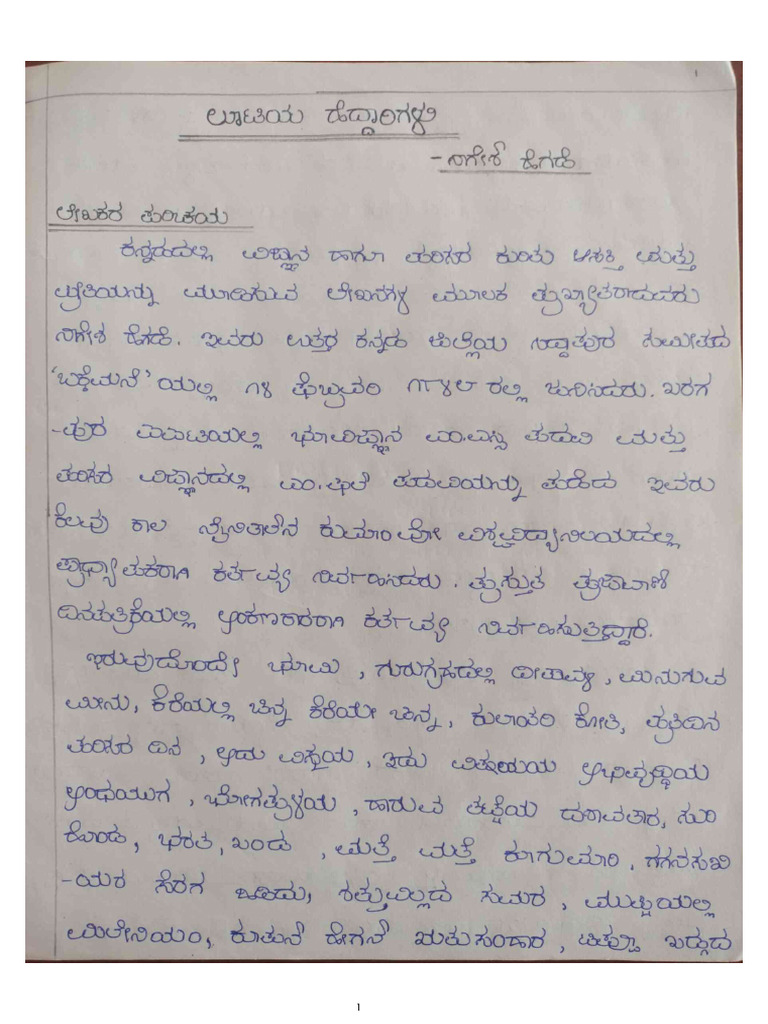 ೧
ಲೂಟಿಯ ಹೆದ್ದಾರಿಗಳಲಿ
- ನಾಗೇಶ ಹೆಗಡೆ
ಲೇಖಕರ ಪರಿಚಯ
ಕನ್ನಡದಲ್ಲಿ ವಿಜ್ಞಾನ ಹಾಗೂ ಪರಿಸರ ಕುರಿತು ಆಸಕ್ತಿ ಮತ್ತು
ಪ್ರೀತಿಯನ್ನು ಮೂಡಿಸುವ ಲೇಖನಗಳ ಮೂಲಕ ಪ್ರಖ್ಯಾತರಾದವರು
ನಾಗೇಶ ಹೆಗಡೆ. ಇವರು ಉತ್ತರ ಕನ್ನಡ ಜಿಲ್ಲೆಯ ಸಿದ್ದಾಪುರ ಸಮೀಪದ
'ಬಕ್ಕೆಮನೆ' ಯಲ್ಲಿ ೧೪ ಫೆಬ್ರವರಿ ೧೯೪೮ ರಲ್ಲಿ ಜನಿಸಿದರು. ಖರಗ
-ಪುರ ಐಐಟಿಯಲ್ಲಿ ಭೂವಿಜ್ಞಾನ ಎಂ.ಎಸ್ಸಿ ಪದವಿ ಮತ್ತು
ಪರಿಸರ ವಿಜ್ಞಾನದಲ್ಲಿ ಎಂ.ಫಿಲ್ ಪದವಿಯನ್ನು ಪಡೆದ ಇವರು
ಕೆಲವು ಕಾಲ ನೈನಿತಾಲಿನ ಕುಮಾಂವೋ ವಿಶ್ವವಿದ್ಯಾನಿಲಯದಲ್ಲಿ
ಪ್ರಾಧ್ಯಾಪಕರಾಗಿ ಕರ್ತವ್ಯ ನಿರ್ವಹಿಸಿದರು. ಪ್ರಸ್ತುತ ಪ್ರಜಾವಾಣಿ
ದಿನಪತ್ರಿಕೆಯಲ್ಲಿ ಅಂಕಣಕಾರರಾಗಿ ಕರ್ತವ್ಯ ನಿರ್ವಹಿಸುತ್ತಿದ್ದಾರೆ.
ಇರುವುದೊಂದೇ ಭೂಮಿ, ಗುರುಗ್ರಹದಲ್ಲಿ ದೀಪಾವಳಿ, ಮಿನುಗುವ
ಮೀನು, ಕೆರೆಯಲ್ಲಿ ಚಿನ್ನ ಕೆರೆಯೇ ಚಿನ್ನ, ಕುಲಾಂತರಿ ಕೋತಿ, ಪ್ರತಿದಿನ
ಪರಿಸರ ದಿನ, ಅದು ವಿಸ್ಮಯ, ಇದು ವಿಷಮಯ ಅಭಿವೃದ್ಧಿಯ
ಅಂಧಯುಗ, ಭೋಗಪ್ರಳಯ, ಹಾರುವ ತಟ್ಟೆಯ ದಶಾವತಾರ, ಸುರಿ
ಹೊಂಡ, ಭರತ, ಖಂಡ, ಮತ್ತೆ ಮತ್ತೆ ಕೂಗುಮಾರಿ, ಗಗನಸಖಿ
-ಯರ ಸೆರಗ ಹಿಡಿದು, ಶತ್ರುವಿಲ್ಲದ ಸಮರ, ಮುಷ್ಟಿಯಲ್ಲಿ
ಮಿಲೇನಿಯಂ, ಕೂತುನೆ ಹೇಗನೆ ಋತುಸಂಹಾರ, ಟಿಪ್ಪೂ ಖಡ್ಗದ
೧